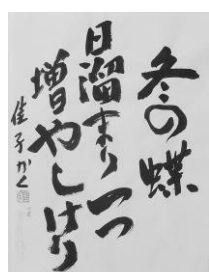 冬の蝶
日溜まり一つ
増やしけり
佳子かく